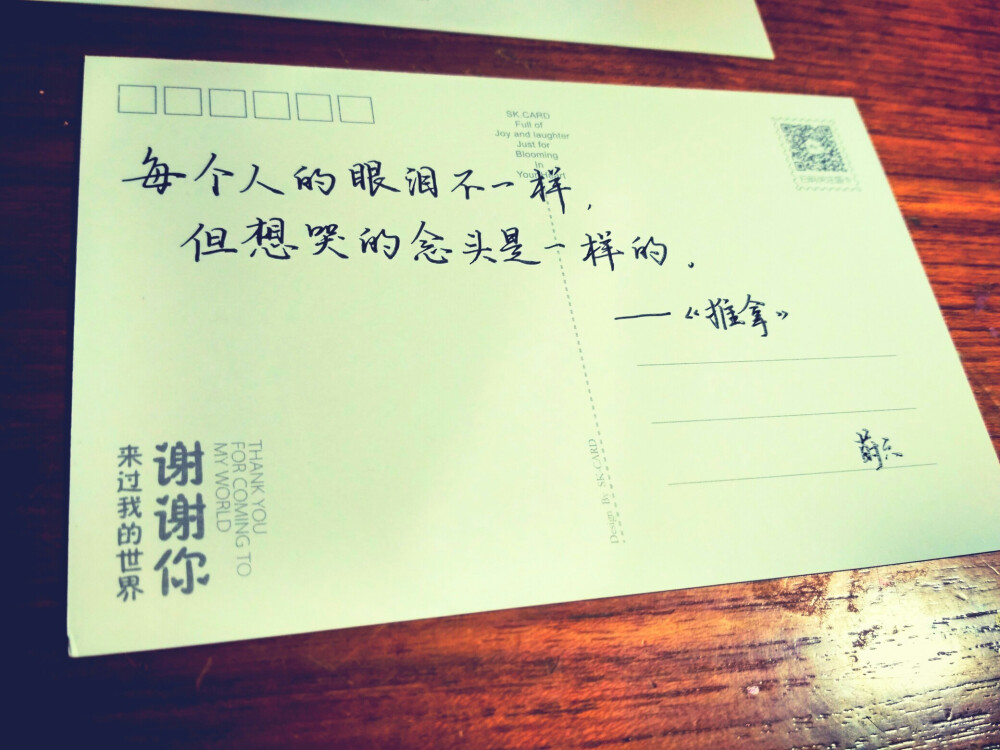 SK.CARD
Full of
Joy and laughter
Just for
Blooming
In
每个人的眼泪不一样，
但想哭的念头是一样的．
——《推拿》
谢谢你
来过我的世界
THANK YOU
FOR COMING TO
MY WORLD
Design By SK.CARD